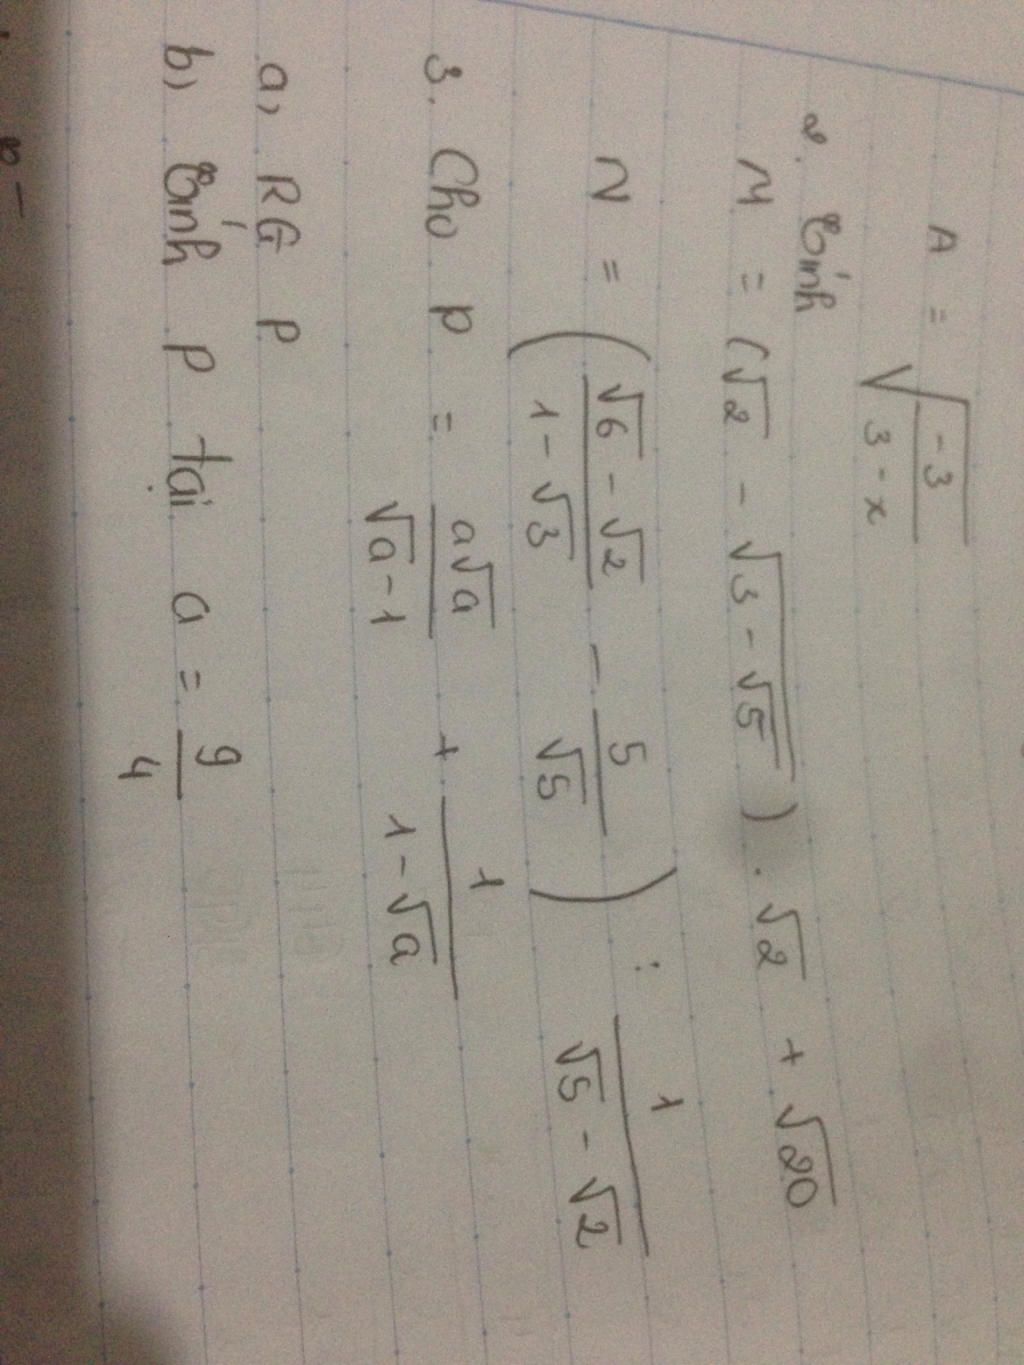 A = √(-3/(3-x))
2. Tính
M = (√2 - √(3-√5)) . √2 + √20
N = ((√6-√2)/(1-√3) - 5/√5) : 1/(√5-√2)
3. Cho P = a√a/(√a-1) + 1/(1-√a)
a, RG P
b, Tính P tại a = 9/4